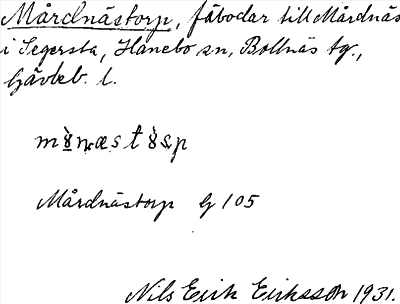 Mårdnästorp, fäbodar till Mårdnäs
i Segersta, Hanebo sn, Bollnäs tg.,
Gävleb. l.
Mårdnästorp G 105
Nils Erik Eriksson 1931.